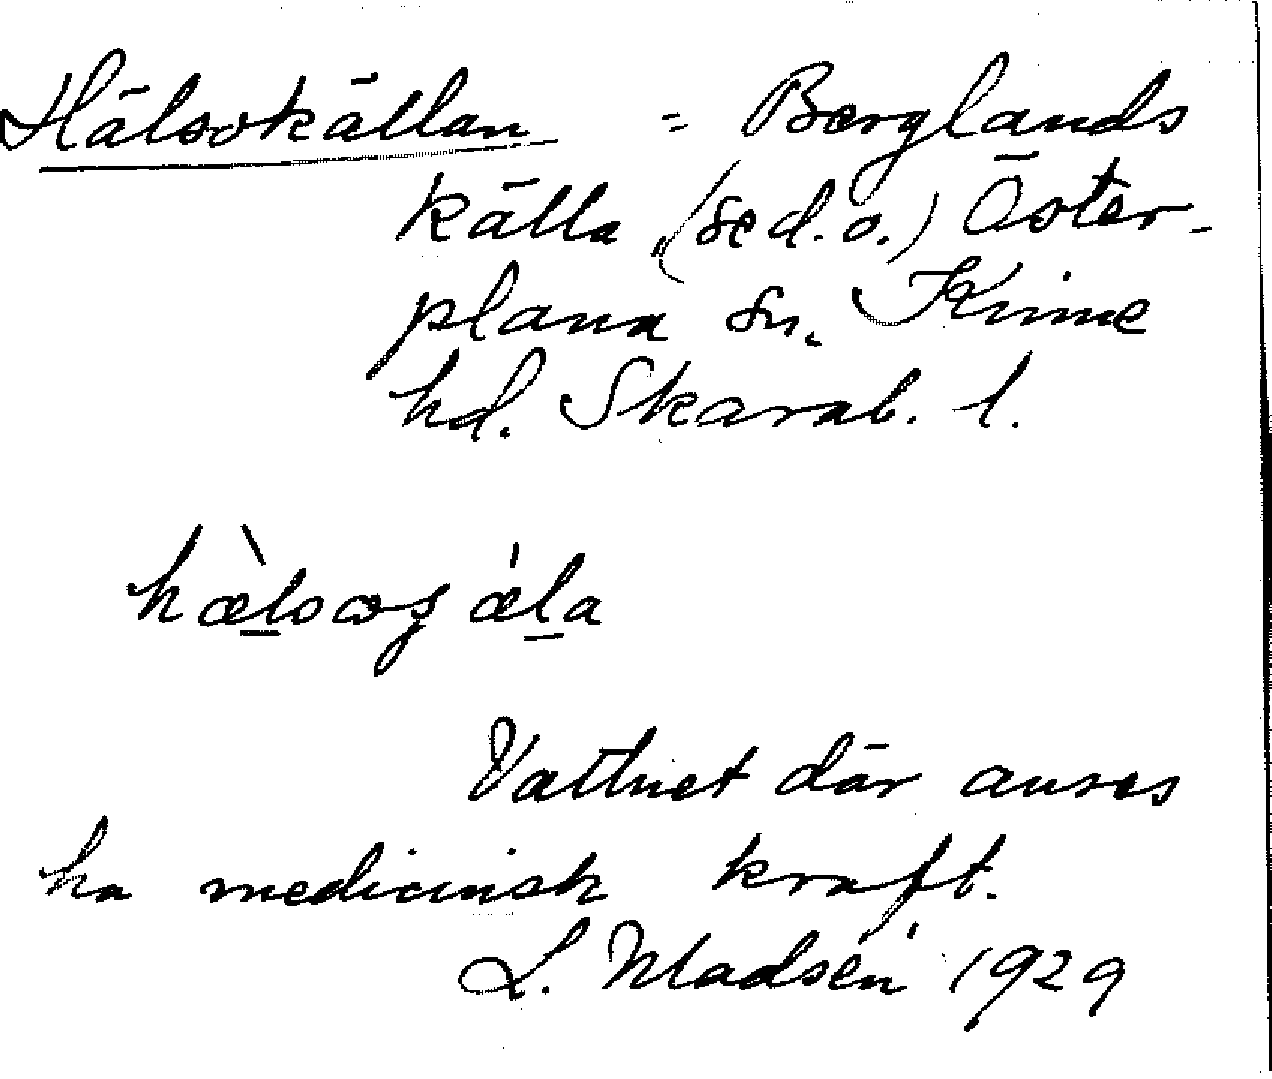 Hälsokällan = Berglands
källa (se d. o.) Öster-
plana sn. Kinne
hd. Skarab. l.
Vattnet där anses
ha medicinsk kraft.
L. Madsén 1929